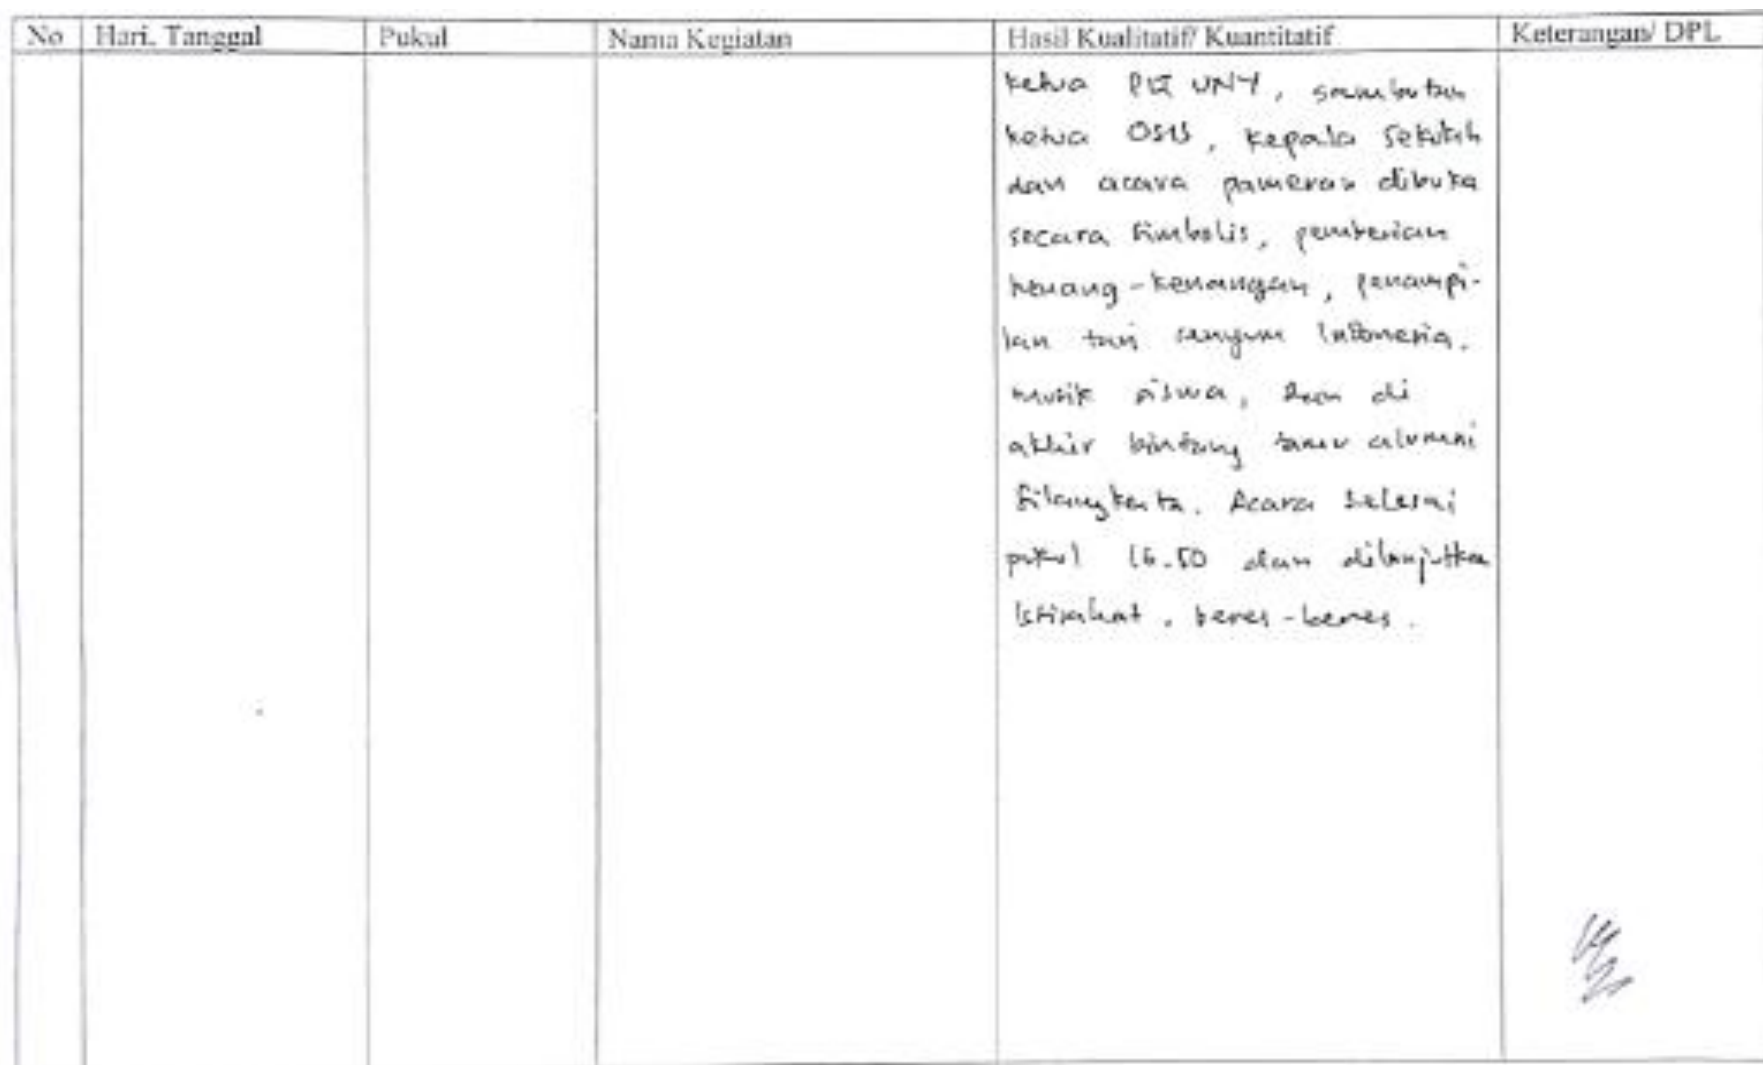 No Hari, Tanggal Pukul Nama Kegiatan Hasil Kualitatif/ Kuantitatif Keterangan/ DPL
ketua UNY, sambutan
ketua OSIS, kepala sekolah
dan acara pameran dibuka
secara simbolis, pemberian
kenang-kenangan, penampi-
lan tari senyum Indonesia.
musik siswa, dan di
akhir bintang tamu alumni
Acara selesai
pukul dan dilanjutkan
istirahat, beres-beres.